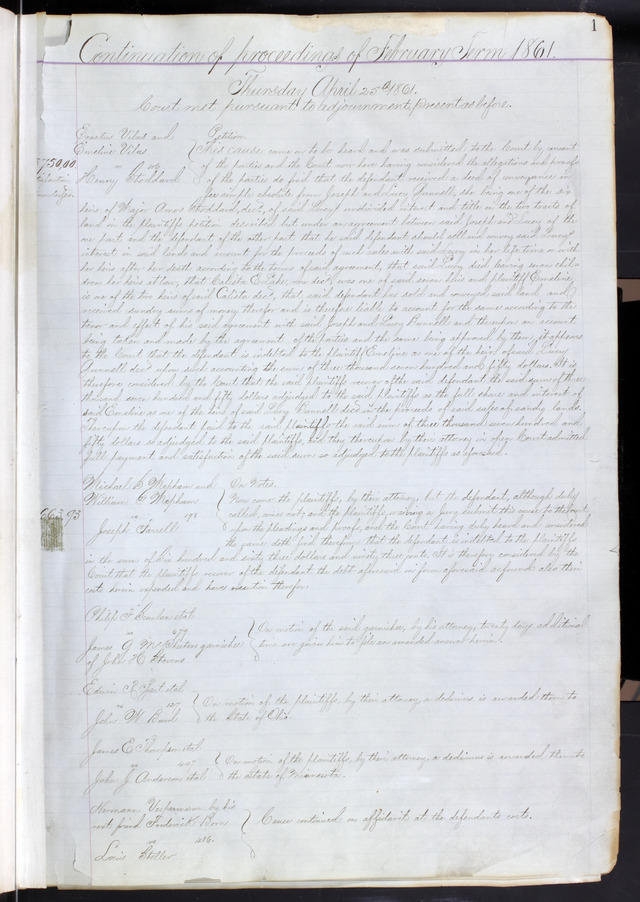 1
Continuation of proceedings of February Term 1861.
Thursday April 25th 1861.
Court met pursuant to adjournment, present as before.
Erastus Vilas and Petition
Emeline Vilas This cause came on to be heard and was submitted to the Court by consent
3750.00 vs of the parties and the Court now here having considered the allegations and proofs
Henry Stoddard of the parties do find that the defendant received a deed of conveyance in
fee simple absolute from Joseph and Lucy Bunnell, she being one of the six
heirs of Major Amos Stoddard, decd, of said Lucy's undivided interest and title in the two tracts of
land in the plaintiffs petition described but under an agreement between said Joseph and Lucy of the
one part and the defendant of the other part, that he said defendant should sell and convey said Lucy's
interest in said lands and account for the proceeds of such sales with said Lucy in her life time or with
her heirs after her death according to the terms of said agreement, that said Lucy died leaving seven chil-
dren her heirs at law, that Calista E. Lake, now decd, was one of said seven heirs and plaintiff Emeline
is one of the two heirs of said Calista decd, that said defendant has sold and conveyed said land and
received sundry sums of money therefor and is therefore liable to account for the same according to the
tenor and effect of his said agreement with said Joseph and Lucy Bunnell and thereupon an account
being taken and made by the agreement of the parties and the same being approved by them, it appears
to the Court that the defendant is indebted to the plaintiff Emeline as one of the heirs of said Lucy
Bunnell decd upon such accounting the sum of three thousand seven hundred and fifty dollars. It is
therefore considered by the Court that the said plaintiffs recover of the said defendant the said sum of three
thousand seven hundred and fifty dollars adjudged to the said plaintiffs as the full share and interest of
said Emeline as one of the heirs of said Lucy Bunnell decd in the proceeds of said sales of said lands.
Thereupon the defendant paid to the said plaintiffs the said sum of three thousand seven hundred and
fifty dollars so adjudged to the said plaintiffs, and they thereupon by their attorney in open Court admitted
full payment and satisfaction of the said sum so adjudged to the plaintiffs as aforesaid.
Michael L. Mepham and On Notes.
William G. Mepham Now come the plaintiffs, by their attorney, but the defendant, although duly
663.93 vs 178 called, comes not; and the plaintiffs, waiving a jury submit this cause to the Court
Joseph Farrell for the pleadings and proofs, and the Court having duly heard and considered
the same doth find therefrom that the defendant is indebted to the plaintiffs
in the sum of six hundred and sixty three dollars and ninety three cents. It is therefore considered by the
Court that the plaintiffs recover of the defendant the debt aforesaid in form aforesaid as found also their
costs herein expended and have execution therefor.
Philip F. Scanlan et al
vs On motion of the said garnishee, by his attorney, twenty days additional
James G. McPheters garnishee time are given him to file an amended answer herein.
of John H. Stevens
Edwin R. et al
vs 157 On motion of the plaintiffs, by their attorney, a dedimus is awarded them to
John W. the State of Ohio.
James E. Thompson et al
vs On motion of the plaintiffs, by their attorney, a dedimus is awarded them to
John J. Anderson et al the State of Minnesota.
Hermann by his
next friend Frederick Born Cause continued on affidavit at the defendants costs.
vs 416.
Louis Stoller